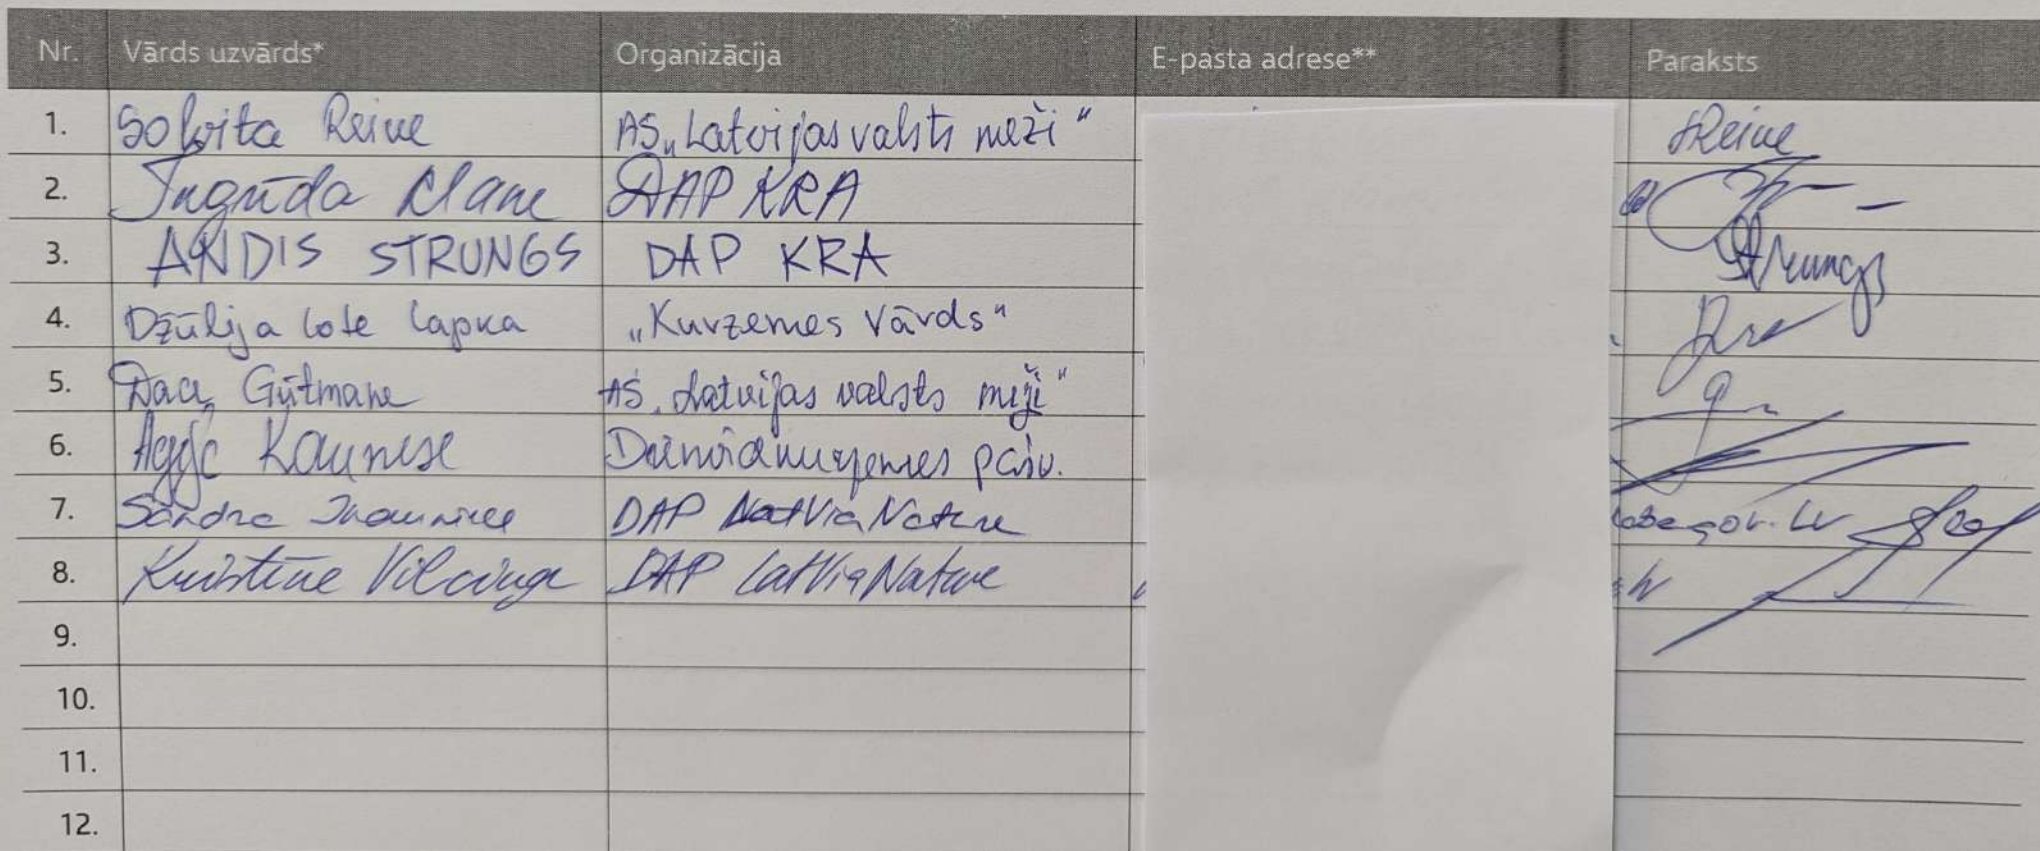 Nr. Vārds uzvārds* Organizācija E-pasta adrese** Paraksts
1. Solvita Reine AS „Latvijas valsts meži" SReine
2. Ingrīda Clane DAP KRA
3. ANDIS STRUNGS DAP KRA Strungs
4. Džūlija Lote Lapka „Kurzemes Vārds"
5. Dace Gūtmane AS „Latvijas valsts meži"
6. pašv.
7. Sandra DAP LatViaNature gov.lv
8. Kristīne Vilciņa DAP LatViaNature
9.
10.
11.
12.